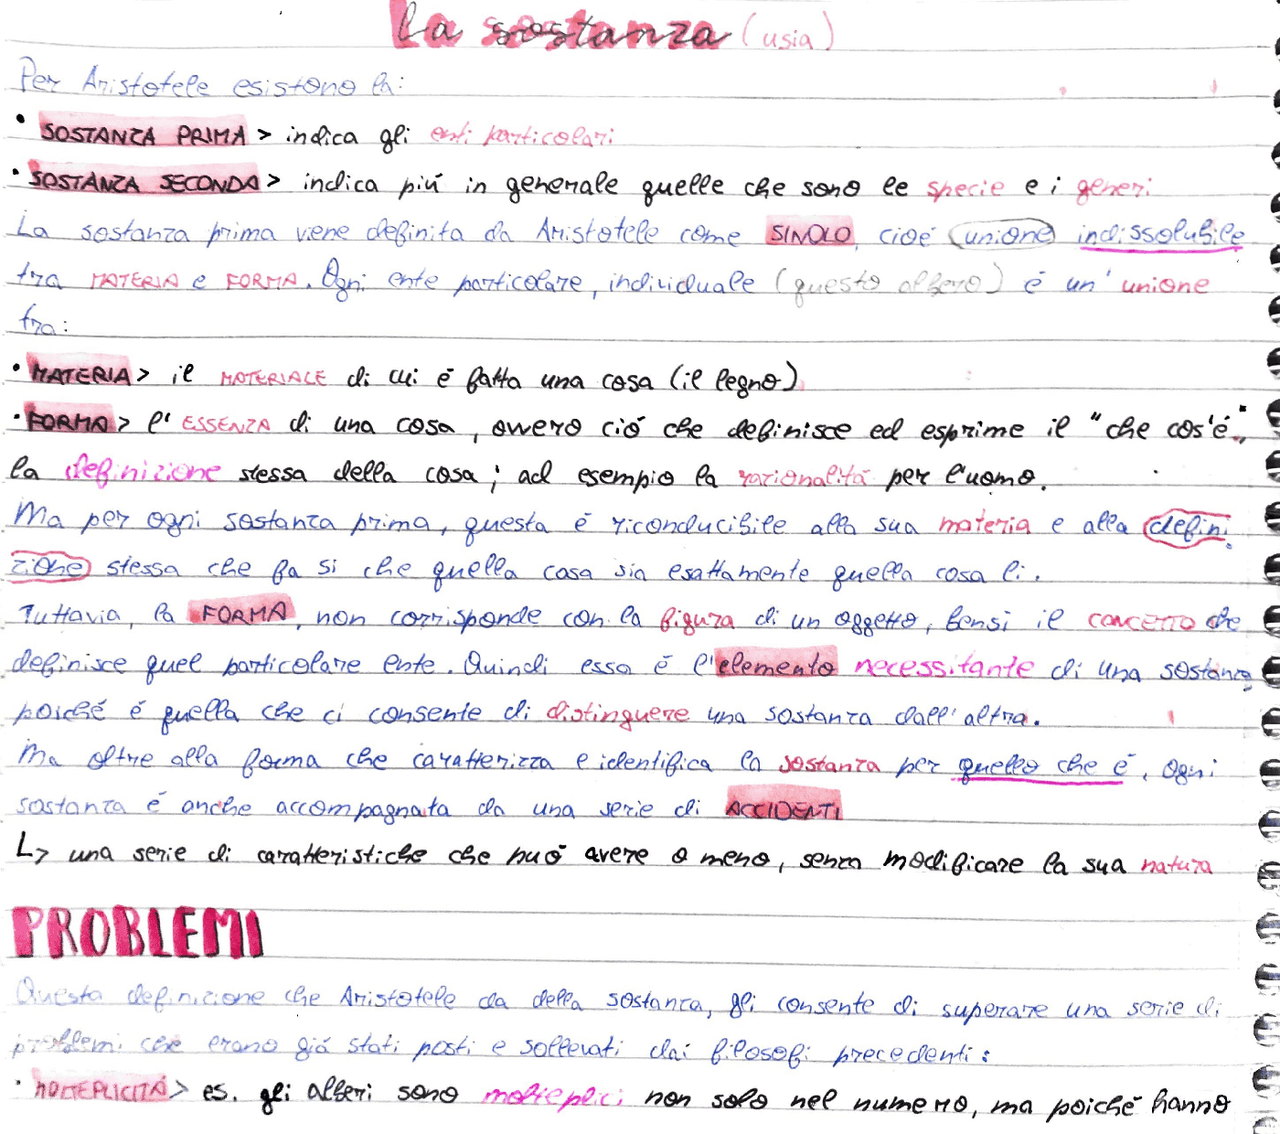 La sostanza (usia)
Per Aristotele esistono la:
• SOSTANZA PRIMA > indica gli enti particolari
• SOSTANZA SECONDA > indica più in generale quelle che sono le specie e i generi
La sostanza prima viene definita da Aristotele come SINOLO, cioé (unione) indissolubile
tra MATERIA e FORMA. Ogni ente particolare, individuale (questo albero) é un' unione
fra:
• MATERIA > il MATERIALE di cui é fatta una cosa (il legno)
• FORMA > l' ESSENZA di una cosa, ovvero ció che definisce ed esprime il "che cos'é",
la definizione stessa della cosa; ad esempio la razionalitá per l'uomo.
Ma per ogni sostanza prima, questa é riconducibile alla sua materia e alla defini
zione stessa che fa si che quella cosa sia esattamente quella cosa li.
Tuttavia, la FORMA, non corrisponde con la figura di un oggetto, bensi il CONCETTO che
definisce quel particolare ente. Quindi essa é l'elemento necessitante di una sostanza
poiché é quella che ci consente di distinguere una sostanza dall'altra.
Ma oltre alla forma che caratterizza e identifica la sostanza per quello che é, ogni
sostanza é anche accompagnata da una serie di ACCIDENTI
L> una serie di caratteristiche che puó avere o meno, senza modificare la sua natura
PROBLEMI
Questa definizione che Aristotele da della sostanza, gli consente di superare una serie di
problemi che erano giá stati posti e sollevati dai filosofi precedenti:
• MOLTEPLICITÁ > es. gli alberi sono molteplici non solo nel numero, ma poiché hanno